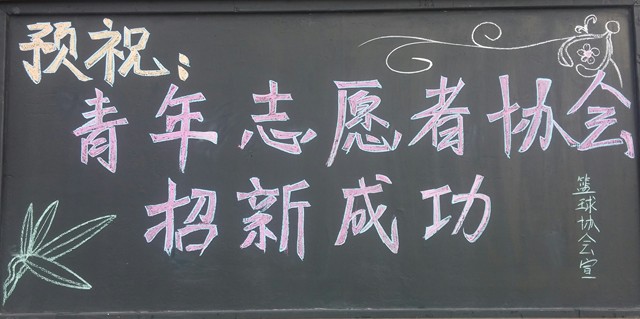 预祝：
青年志愿者协会
招新成功
篮球协会宣